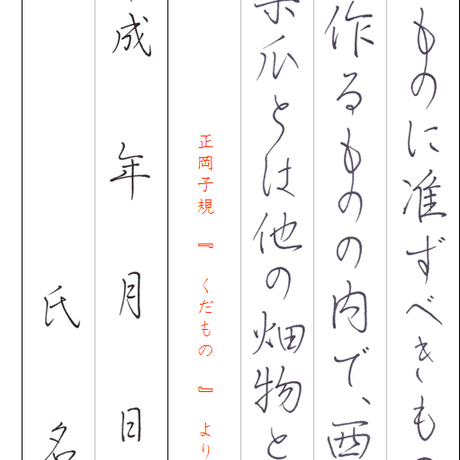 ものに准ずべきも
作るものの内で、西
瓜とは他の畑物と
正岡子規『くだもの』より
成年月日
氏名